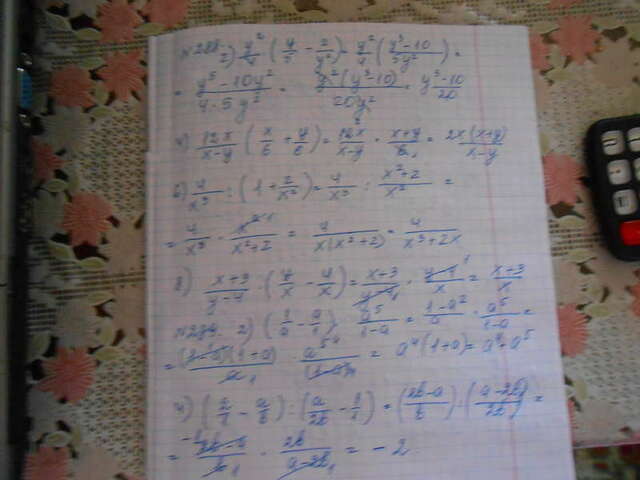 №288. 2) y²/4 (y/5 - 2/y²) = y²/4 (y³-10 / 5y²) =
= y⁵-10y² / 4·5y² = y²(y³-10) / 20y² = y³-10 / 20
4) 12x/x-y (x/6 + y/6) = 12x/x-y · x+y/6 = 2x(x+y)/x-y
6) 4/x³ : (1 + 2/x²) = 4/x³ : x²+2/x² =
= 4/x³ · x²/x²+2 = 4/x(x²+2) = 4/x³+2x
8) x+3/y-4 · (y/x - 4/x) = x+3/y-4 · y-4/x = x+3/x
№289. 2) (1/a - a/1) · a⁵/1-a = 1-a²/a · a⁵/1-a =
= (1-a)(1+a)/a · a⁵/(1-a) = a⁴(1+a) = a⁴+a⁵
4) (2/1 - a/b) : (a/2b - 1/1) = (2b-a/b) : (a-2b/2b) =
= · 2b/a-2b = -2